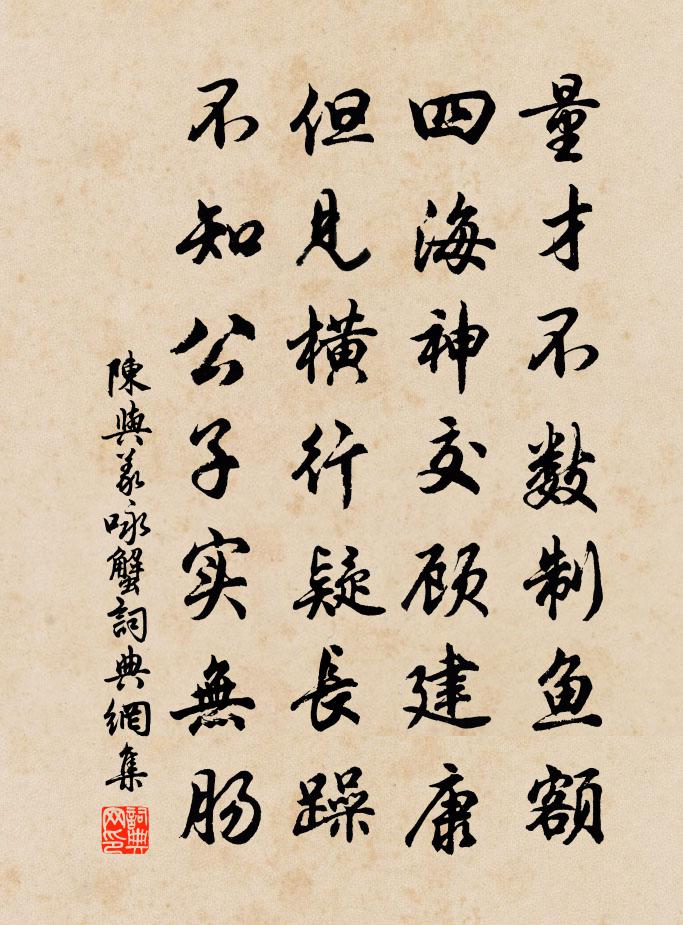 量才不数制鱼额
四海神交顾建康
但见橫行疑長躁
不知公子实無肠
陳與義咏蟹詞典網集
詞典网印